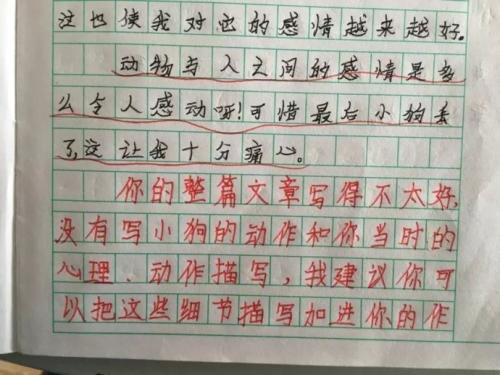 这也使我对它的感情越来越好。
动物与人之间的感情是多
么令人感动呀!可惜最后小狗丢
了,这让我十分痛心。
你的整篇文章写得不太好,
没有写小狗的动作和你当时的
心理、动作描写,我建议你可
以把这些细节描写加进你的作